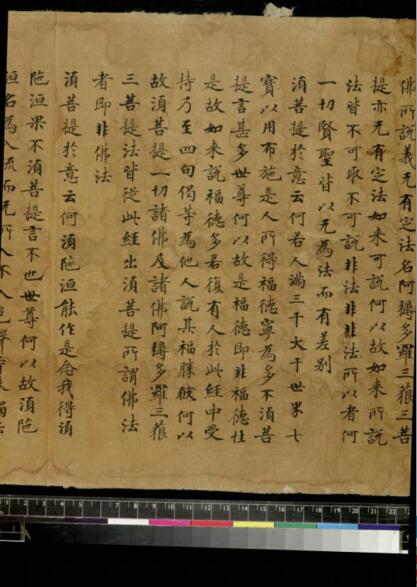 佛所說義无有定法名阿耨多羅三藐三菩
提亦无有定法如来可說何以故如来所說
法皆不可取不可說非法非非法所以者何
一切賢聖皆以无為法而有差别
湏菩提於意云何若人滿三千大千世界七
寶以用布施是人所得福德寧為多不湏菩
提言甚多世尊何以故是福德即非福德性
是故如来說福德多若復有人於此經中受
持乃至四句偈等為他人說其福勝彼何以
故湏菩提一切諸佛及諸佛阿耨多羅三藐
三菩提法皆從此經出湏菩提所謂佛法
者即非佛法
湏菩提於意云何湏陁洹能作是念我得湏
陁洹果不湏菩提言不也世尊何以故湏陁
洹名為入流而无所入不入色聲香味觸法
2 3 4 5 6 7 8 9 10 11 12 13 14 15 16 17 18 19 20 21 22